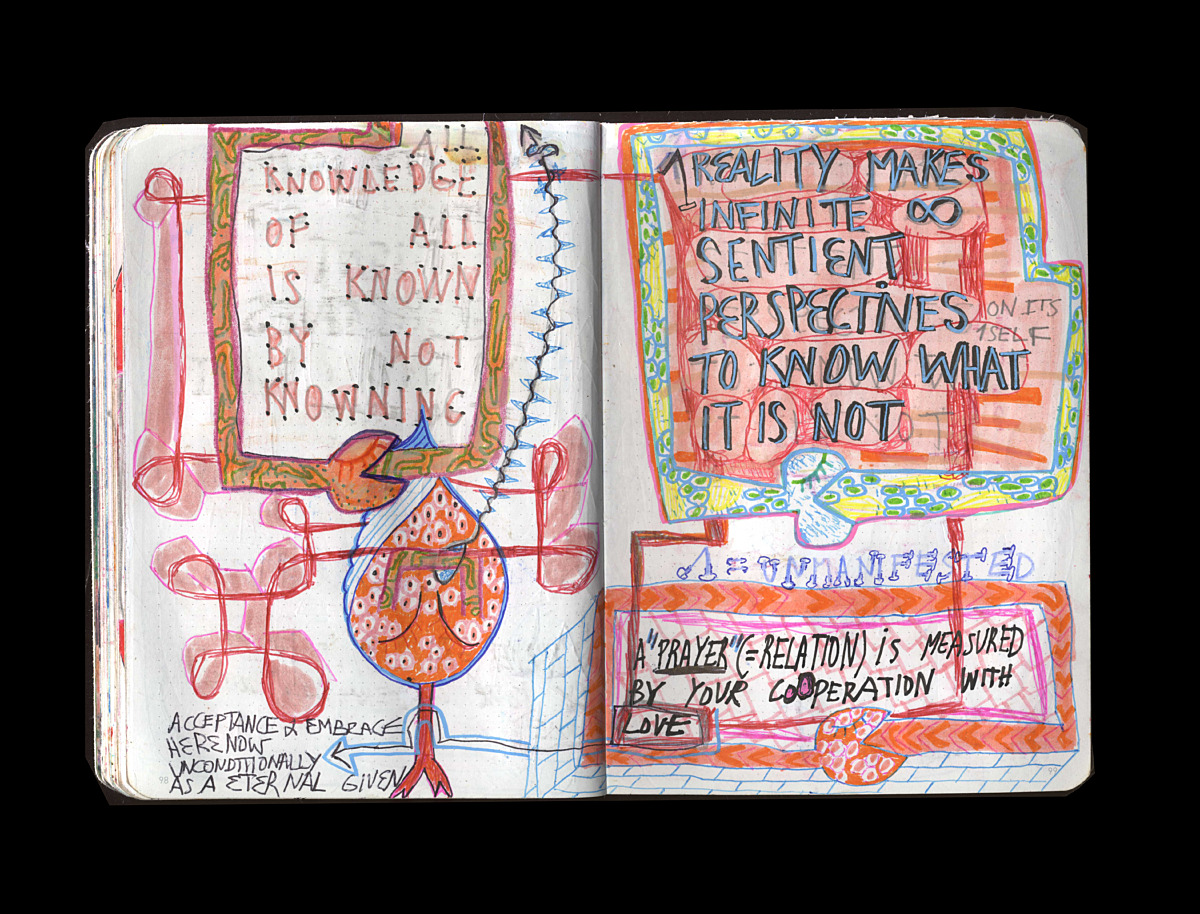 ALL
KNOWLEDGE
OF ALL
IS KNOWN
BY NOT
KNOWNING
ACCEPTANCE & EMBRACE
HERENOW
UNCONDITIONALLY
AS A ETERNAL GIVEN
98
1 REALITY MAKES
INFINITE ∞
SENTIENT
PERSPECTIVES
ON ITS
1SELF
TO KNOW WHAT
IT IS NOT
1 = UNMANIFESTED
A "PRAYER" (=RELATION) iS MEASURED
BY YOUR COOPERATION WITH
LOVE
99